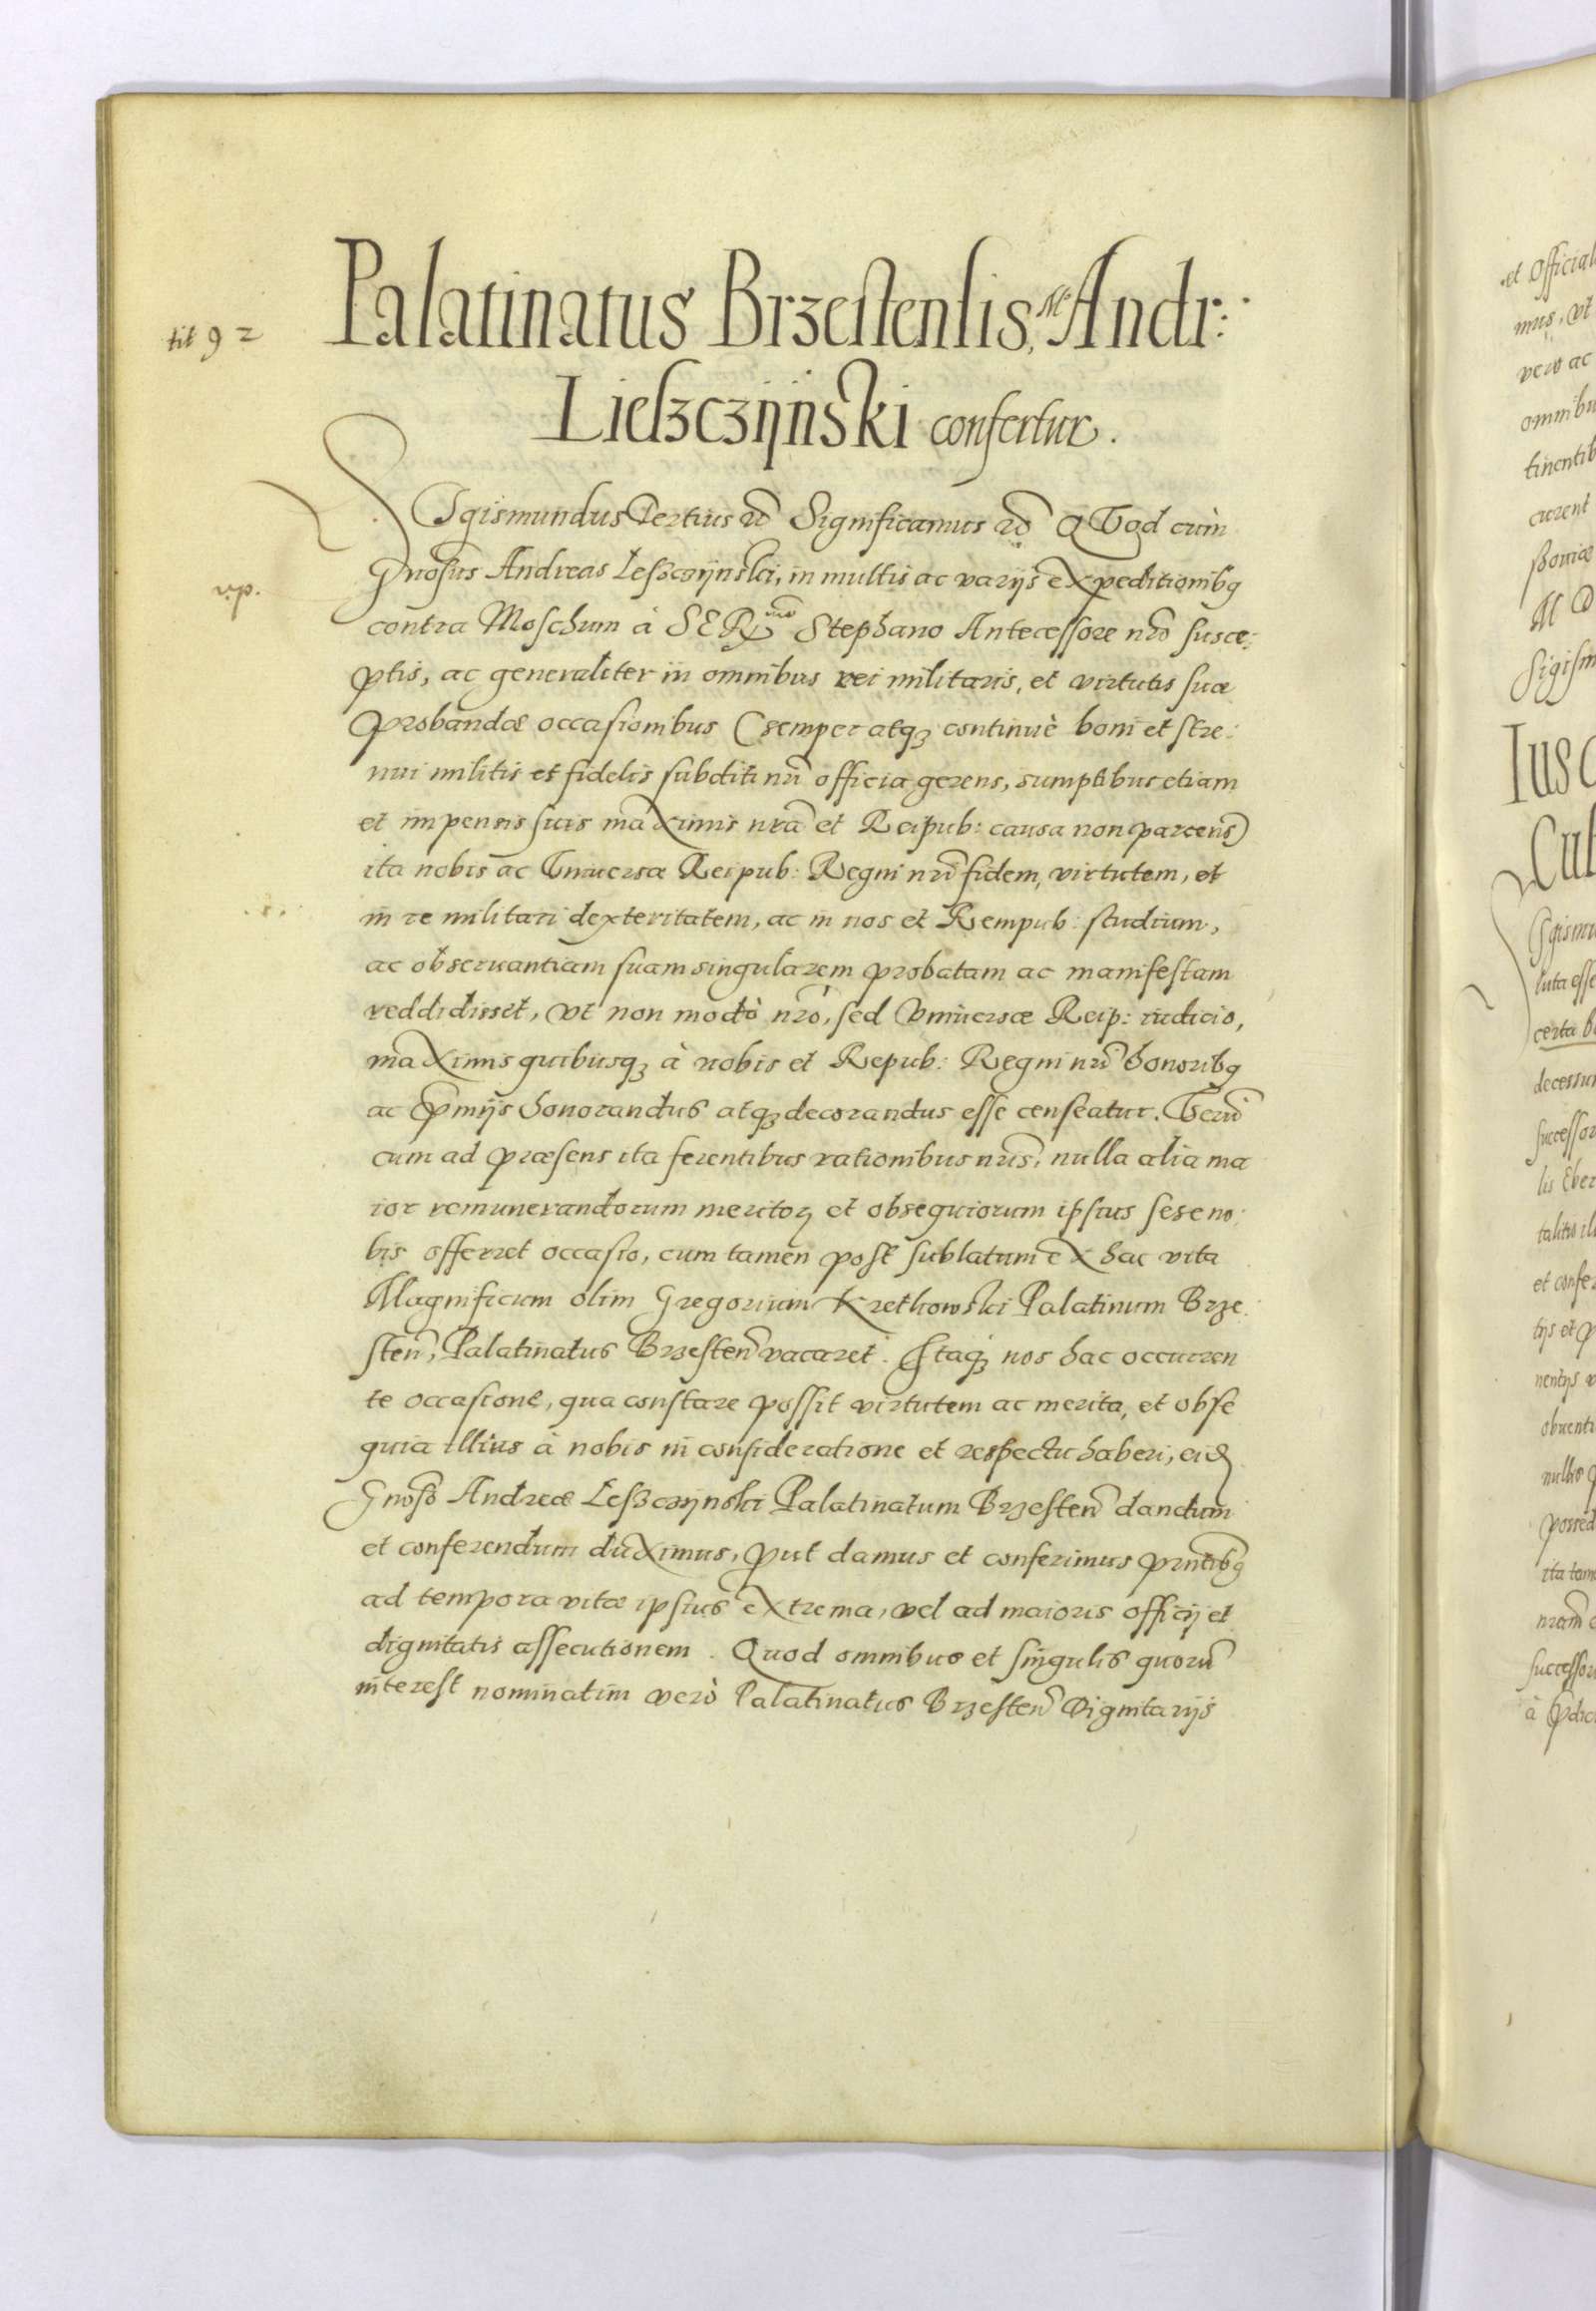 Palatinatus Brzestensis, Mco Andr:
tit 92
Lieszczÿński confertur.
Sigismundus Tertius etc Significamus etc Quod cùm
Gnosus Andreas Leszczÿnski, in multis ac varijs eXpeditionibq
vip.
contra Moschum à SERmo Stephano Antecessore nro susce:
ptis, ac generaliter in omnibus rei militaris, et virtutis suæ
probandæ occasionibus (semper atq3 continuè boni et stre:
nui militis et fidelis subditi nri officia gerens, sumptibus etiam
et impensis suis maXimis nra et Reipub: causa non parcens)
ita nobis ac Vniuersæ Reipub: Regni nri fidem, virtutem, et
in re militari dexteritatem, ac in nos et Rempub: studium,
ac obseruantiam suam singularem probatam ac manifestam
reddidisset, vt non modò nro, sed vniuersæ Reip: iudicio,
maXimis quibusq3 à nobis et Repub: Regni nri honoribq
ac pmijs honorandus atq3 decorandus esse censeatur. Verũ
cum ad præsens ita ferentibus rationibus nris, nulla alia ma
ior remunerandorum meritoꝝ et obsequiorum ipsius sese no:
bis offerret occasio, cum tamen post sublatum eX hac vita
Magnificum olim Gregorium Krethowski Palatinum Brze:
sten, Palatinatus Brzesten vacaret. Itaq3 nos hac occurren
te occasione, qua constare possit virtutem ac merita, et obse
quia illius à nobis in consideratione et respectu haberi, eid
Gnoso Andreæ Leszczÿnski Palatinatum Brzesten dandum
et conferendum duXimus, put damus et conferimus pntibq
ad tempora vitæ ipsius eXtrema, vel ad maioris officij et
dignitatis assecutionem. Quod omnibus et singulis quorũ
interest nominatim verò Palatinatus Brzesten Dignitarijs